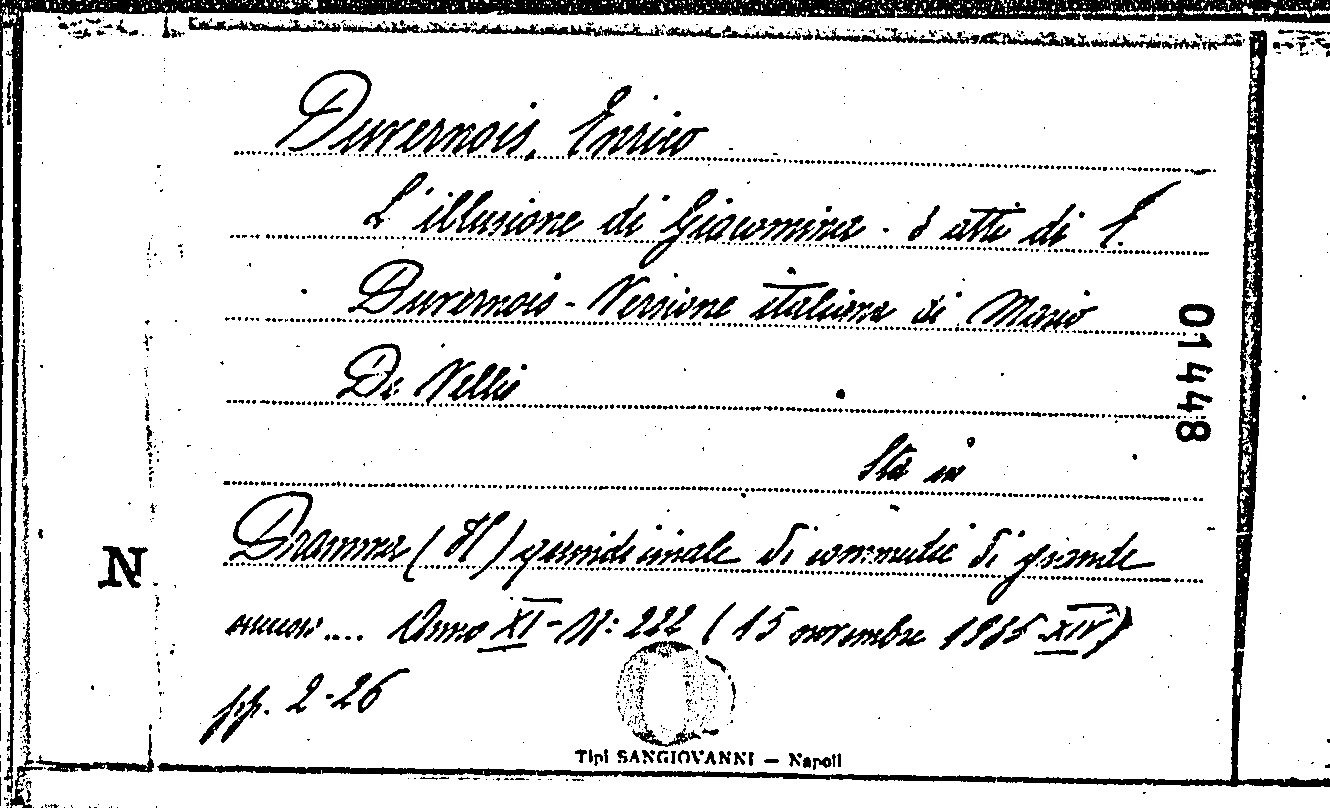 Duvernois, Enrico
L'illusione di Giacomina - 3 atti di E.
Duvernois - Versione italiana di Mario
De Vellis
Sta in
Dramma (Il) quindicinale di commedie di grande
successo.... Anno XI - N: 222 (15 novembre 1935-XIV)
pp. 2-26
N
01448
Tipi SANGIOVANNI — Napoli